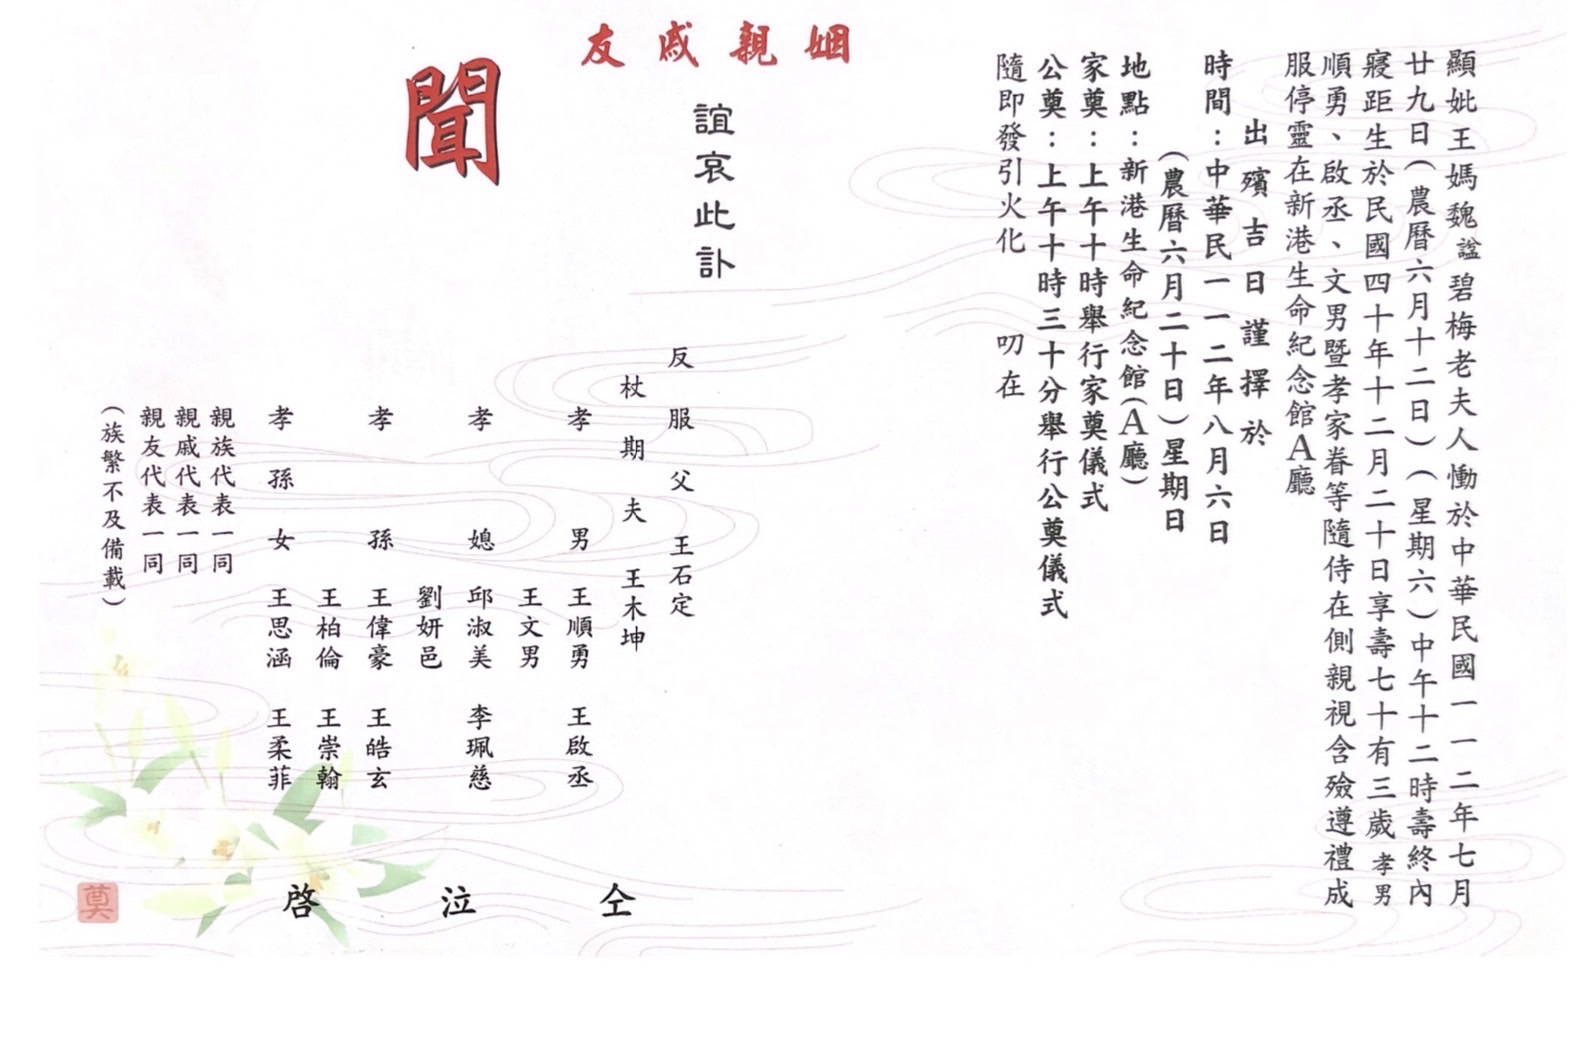 顯妣王媽魏諡碧梅老夫人慟於中華民國一一二年七月
廿九日(農曆六月十二日)(星期六)中午十二時壽終內
寢距生於民國四十年十二月二十日享壽七十有三歲孝男
順勇、啟丞、文男暨孝家眷等隨侍在側親視含殮遵禮成
服停靈在新港生命紀念館A廳
出殯吉日謹擇於
時間:中華民一一二年八月六日
(農曆六月二十日)星期日
地點:新港生命紀念館(A廳)
家奠:上午十時舉行家奠儀式
公奠:上午十時三十分舉行公奠儀式
隨即發引火化 叨在
姻親戚友
誼哀此訃
聞
反服父 王石定
杖期夫 王木坤
孝男 王順勇 王啟丞
王文男
孝媳 邱淑美 李珮慈
劉妍邑
孝孫 王偉豪 王皓玄
王柏倫 王崇翰
孝孫女 王思涵 王柔菲
仝泣啓
親族代表一同
親戚代表一同
親友代表一同
(族繁不及備載)
奠